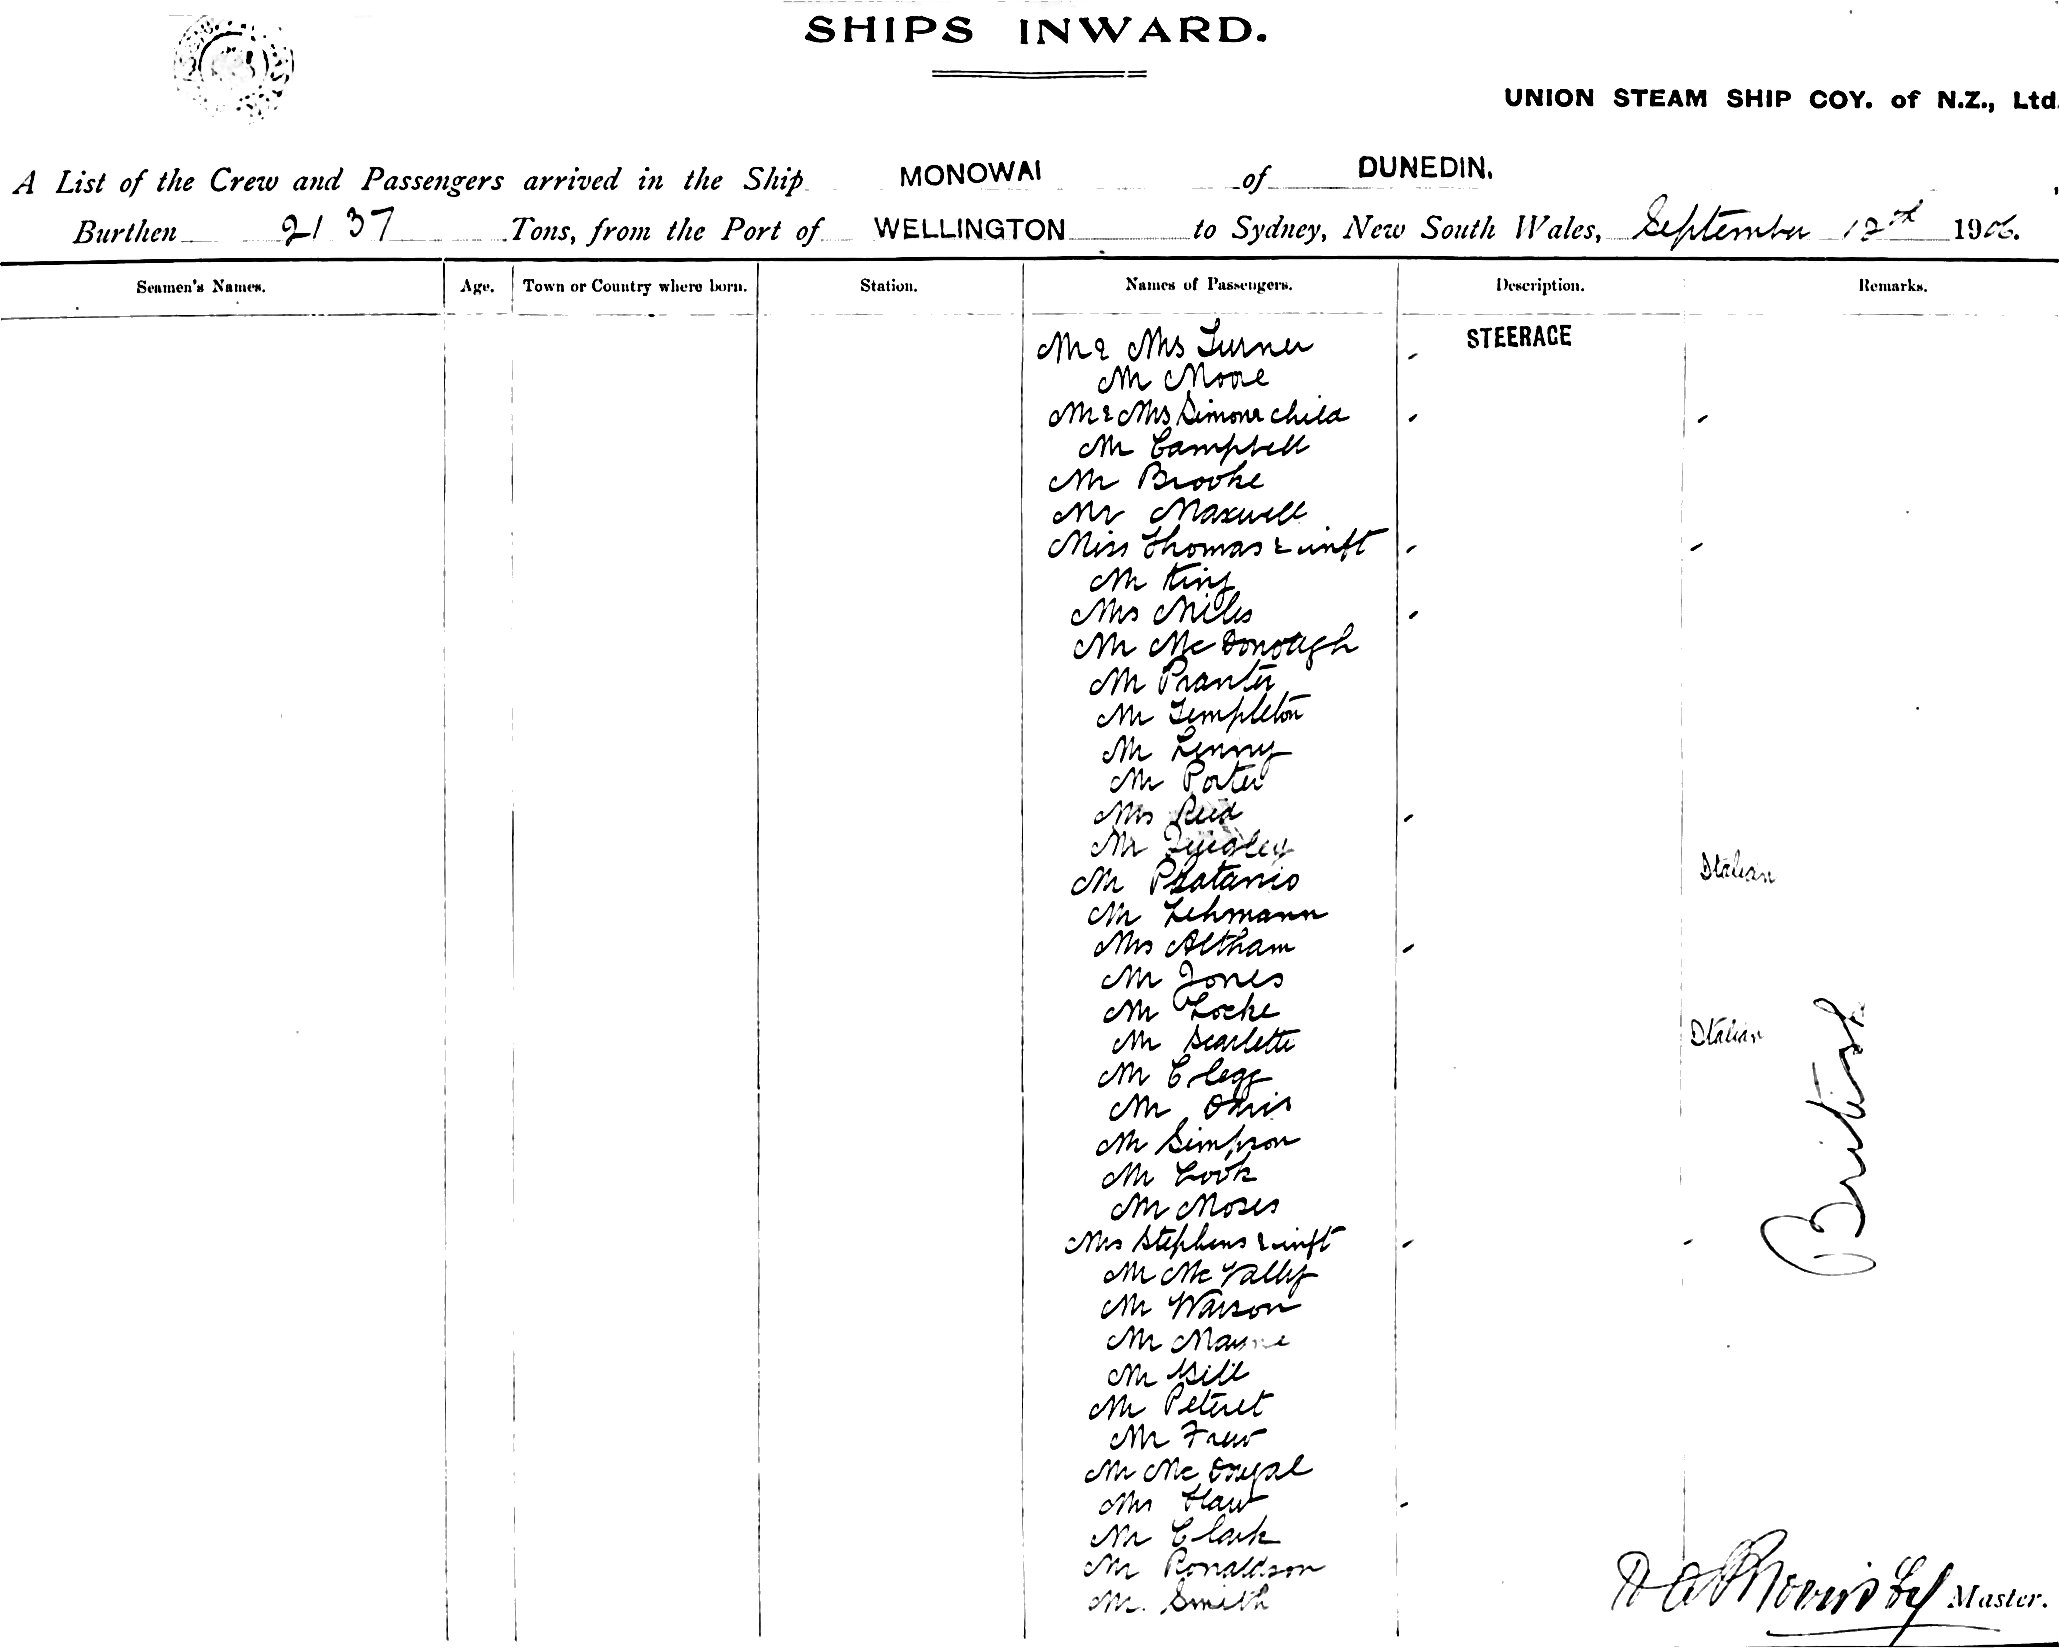 SHIPS INWARD.
UNION STEAM SHIP COY. of N.Z., Ltd.
A List of the Crew and Passengers arrived in the Ship MONOWAI of DUNEDIN,
Burthen 2137 Tons, from the Port of WELLINGTON to Sydney, New South Wales, September 12th 1906.
Seamen's Names. Age. Town or Country where born. Station. Names of Passengers. Description. Remarks.
Mr & Mrs Turner STEERAGE
Mr Moore
Mr & Mrs Simons child
Mr Campbell
Mr Brooke
Mr Maxwell
Miss Thomas & inft
Mr King
Mrs Miles
Mr McDonough
Mr Pranter
Mr Templeton
Mr Lenny
Mr Porter
Mrs Reid
Mr Quigley
Mr Platanio Italian
Mr Lehmann
Mrs Altham
Mr Jones
Mr Locke
Mr Scarlette Italian
Mr Clegg
Mr
Mr Simpson
Mr Cook
Mr Moses
Mrs Stephens & inft
Mr
Mr Watson
Mr Mayne
Mr Gill
Mr Peteret
Mr Frew
Mr McDougal
Mrs Haw
Mr Clark
Mr Ronaldson
Mr. Smith
British
Master.